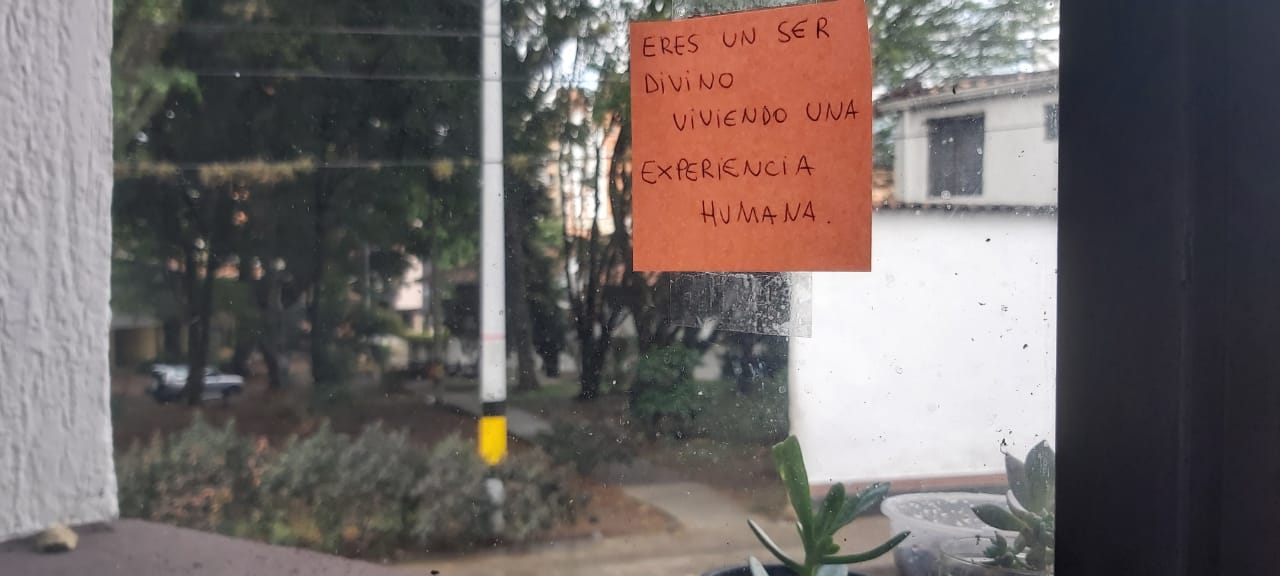 ERES UN SER
DIVINO
VIVIENDO UNA
EXPERIENCIA
HUMANA.